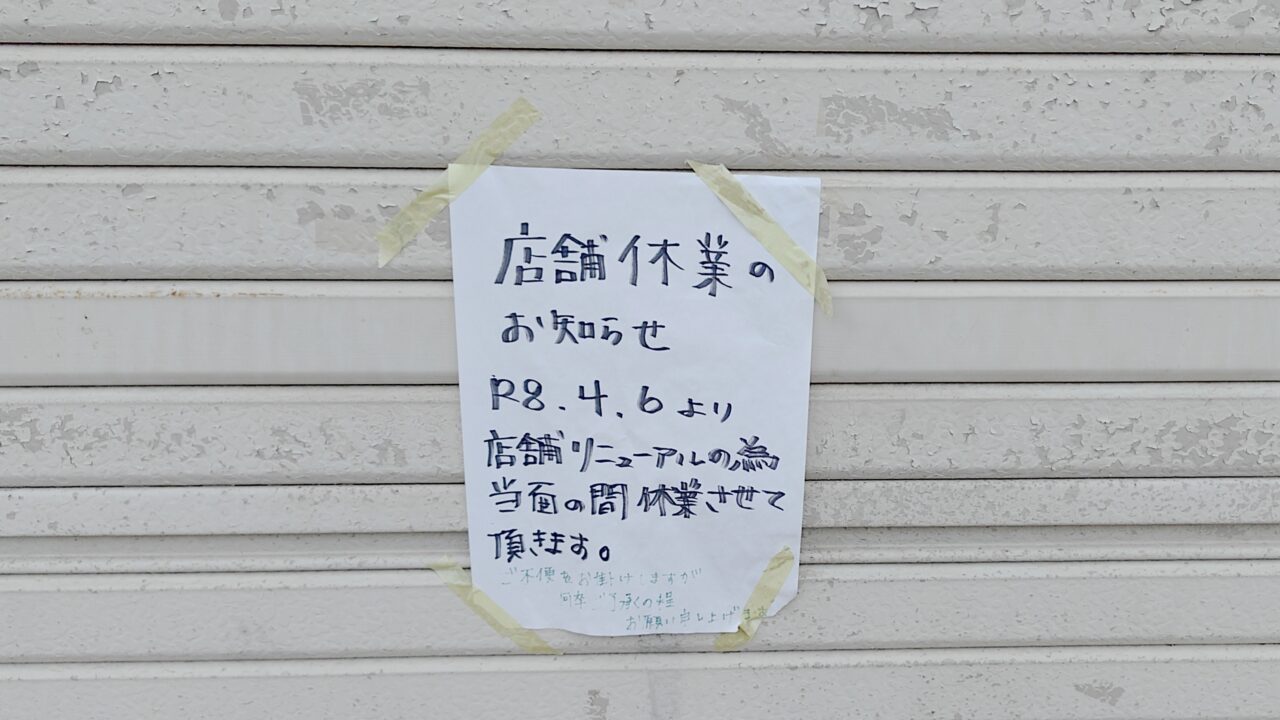 店舗休業の
お知らせ
R8.4.6より
店舗リニューアルの為
当面の間休業させて
頂きます。
ご不便をお掛けしますが
何卒ご了承くの程
お願い申し上げます